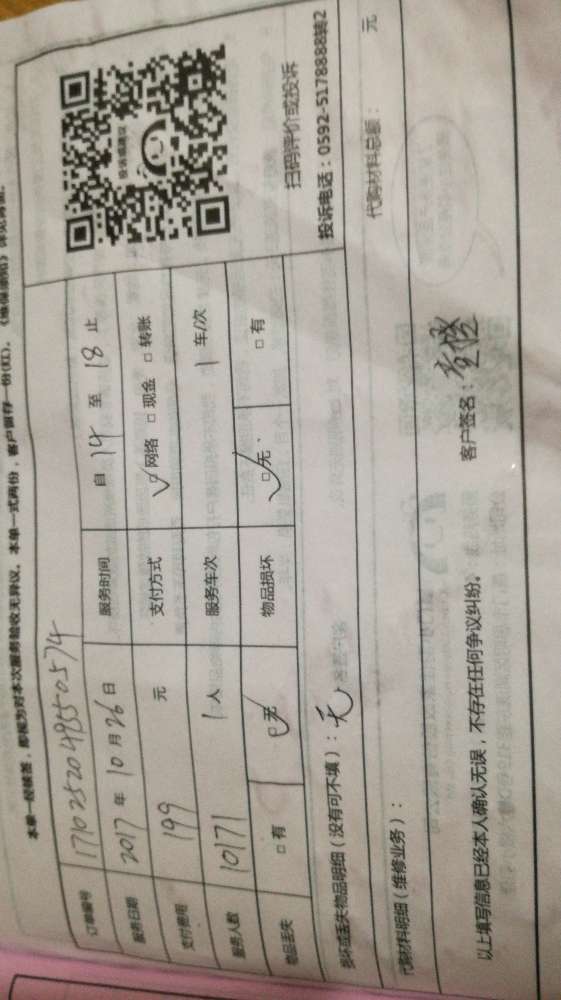 本单一经签署，即视为对本次服务验收无异议。本单一式两份，客户留存一份(红)。
订单编号 17102520495505 74
服务日期 2017 年 10 月 26 日 服务时间 自 14 至 18 止
支付费用 199 元 支付方式 ☑网络 □现金 □转账
服务人数 10171 1 人 服务车次 1 车/次
物品丢失 □有 ☑无 物品损坏 ☑无 □有
投诉或建议
扫码评价或投诉
投诉电话：0592-5178888转2
损坏或丢失物品明细（没有可不填）：无
代购材料明细（维修业务）： 代购材料总额： 元
以上填写信息已经本人确认无误，不存在任何争议纠纷。 客户签名：